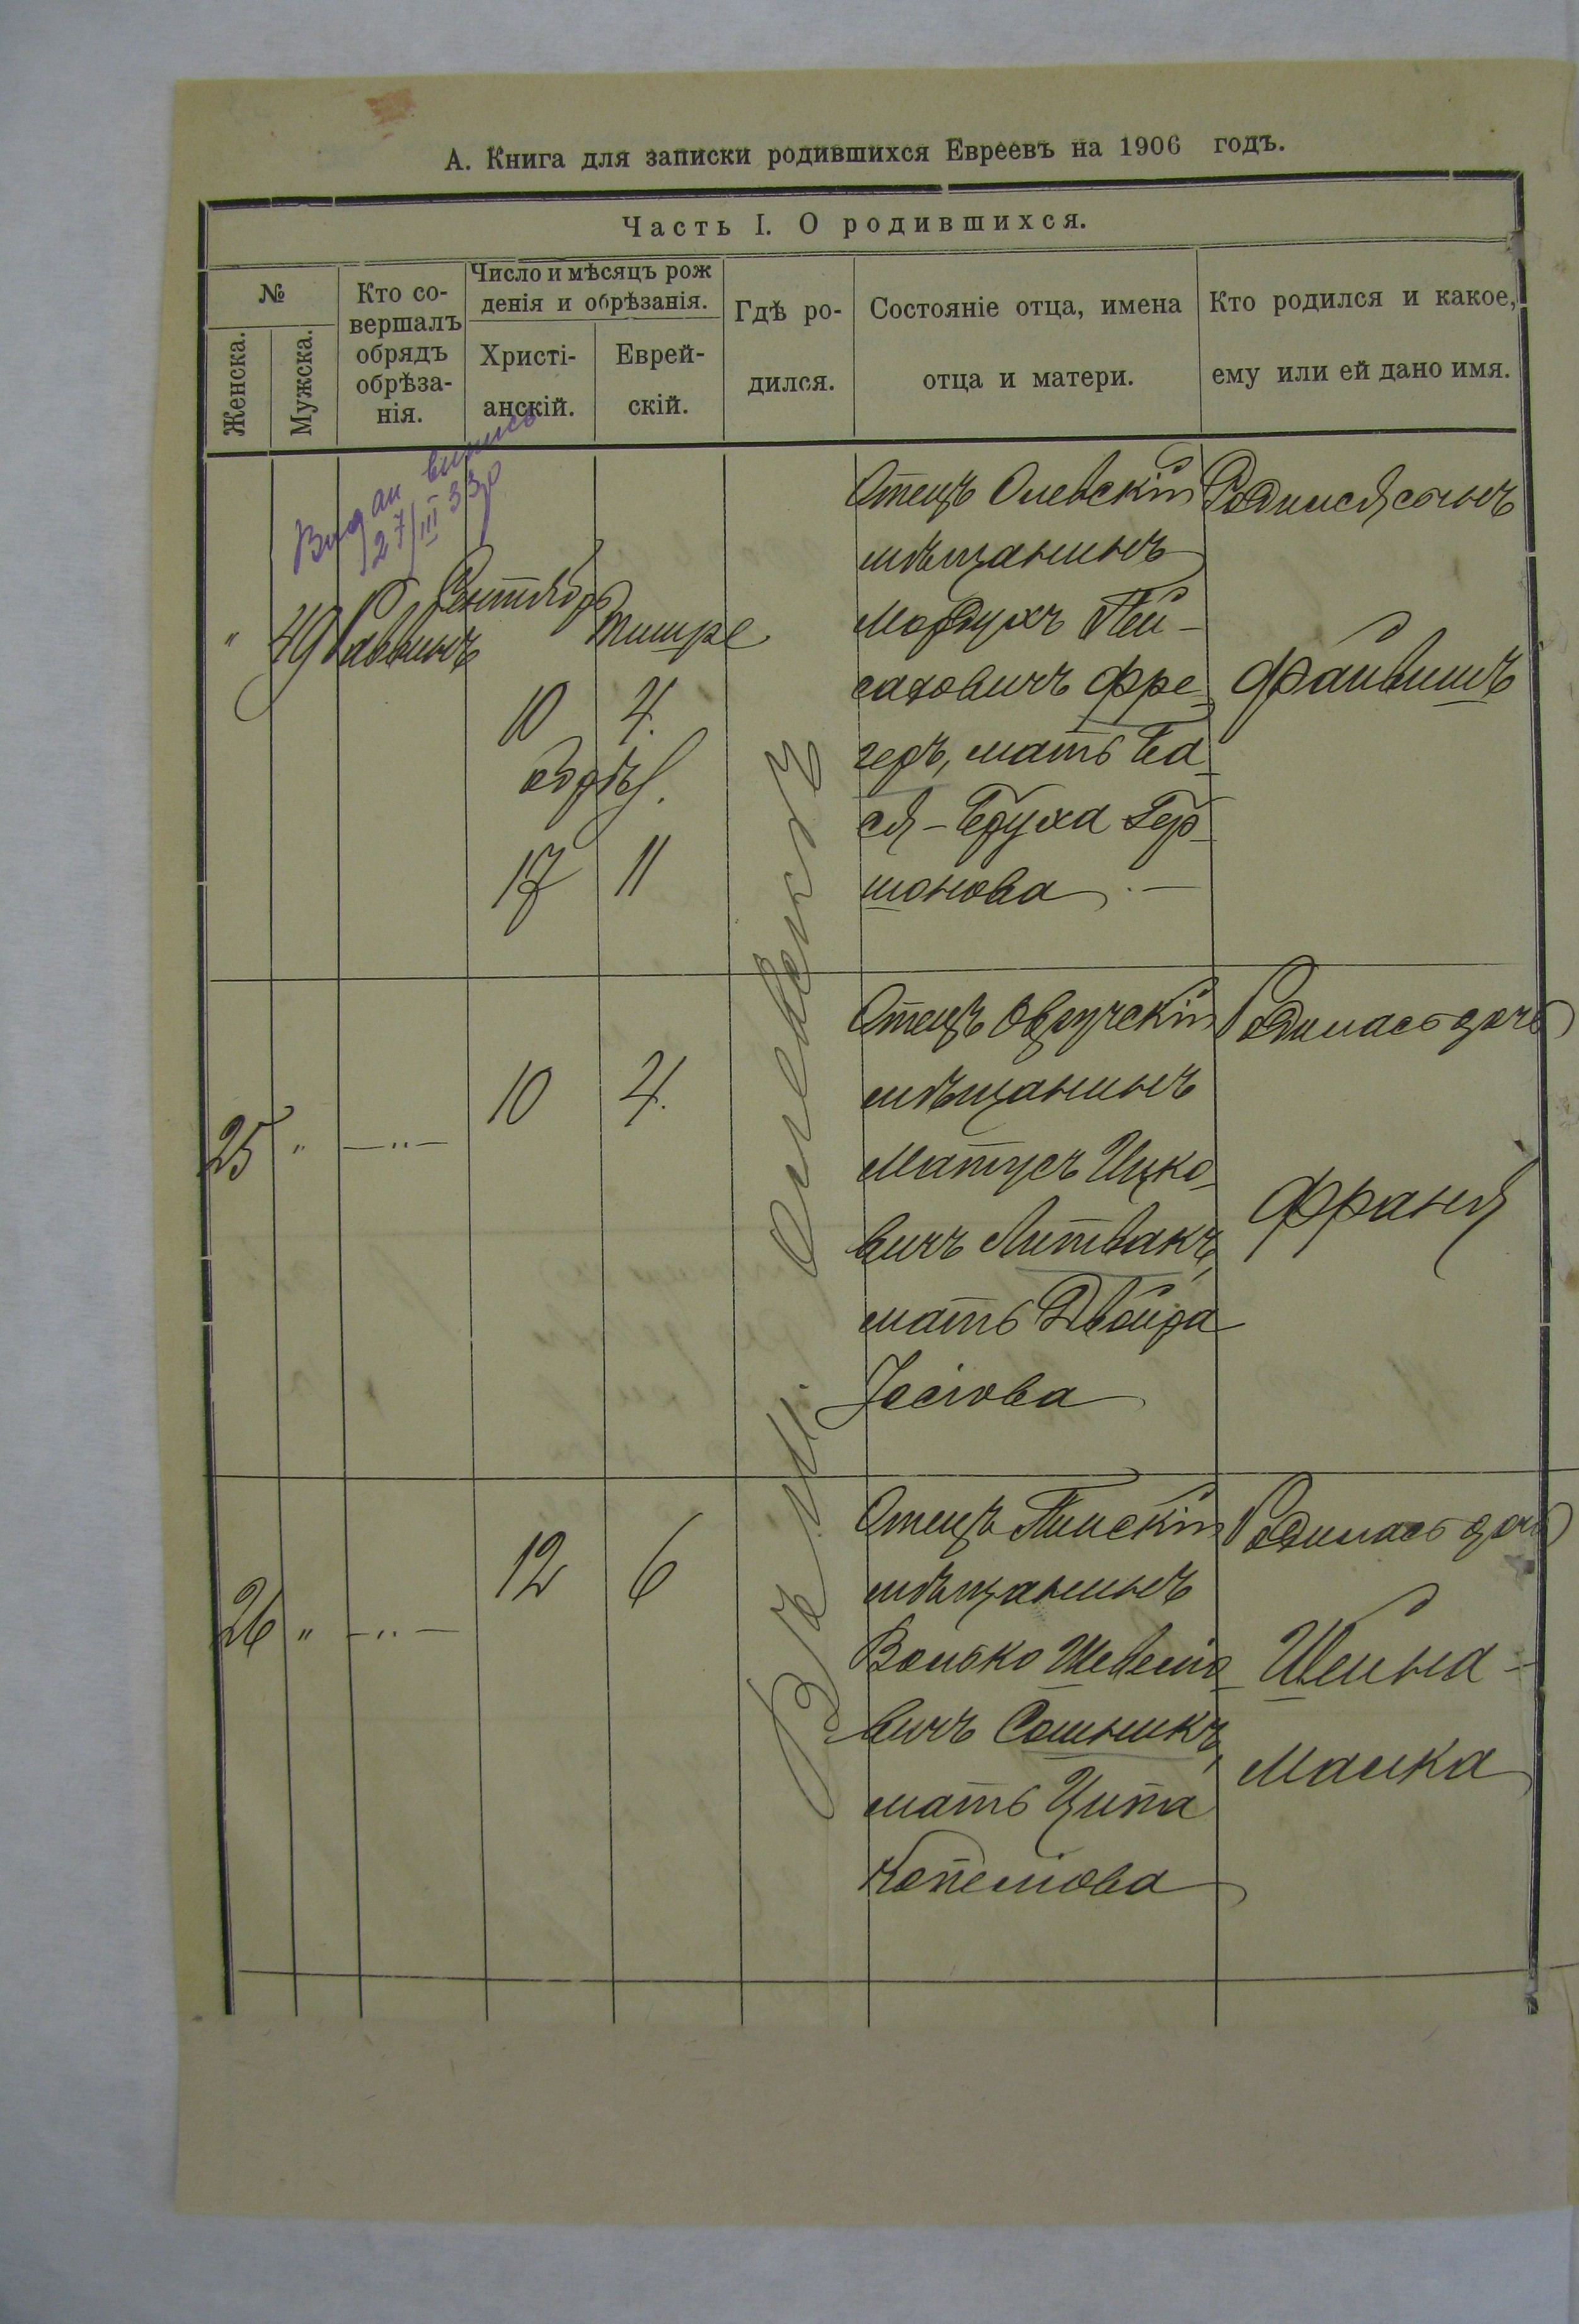 А. Книга для записки родившихся Евреевъ на 1906 годъ.
Часть I. О родившихся.
№
Женска.
Мужска.
Кто со-
вершалъ
обрядъ
обрѣза-
нія.
Число и мѣсяцъ рож
денія и обрѣзанія.
Христі-
анскій.
Еврей-
скій.
Гдѣ ро-
дился.
Состояніе отца, имена
отца и матери.
Кто родился и какое,
ему или ей дано имя.
Видан випись
27/III 33р
"
49
Раввинъ
Сентябрь
Тишре
10
4.
обрѣз.
17
11
Въ м. Олевскѣ
Отецъ Олевскій
мѣщанинъ
Мордухъ Пей-
саховичъ Фре-
геръ, мать Ба-
ся-Бруха Гер-
шонова
Родился сынъ
Файвишъ
25
"
—"—
10
4.
Отецъ Овручскій
мѣщанинъ
Матусъ Ицко-
вичъ Литвакъ,
мать Двойра
Іосіова
Родилась дочь
Франя
26
"
—"—
12
6
Отецъ Пинскій
мѣщанинъ
Волько
вичъ Сошникъ,
мать Ципа
Родилась дочь
Шейна-
Малка